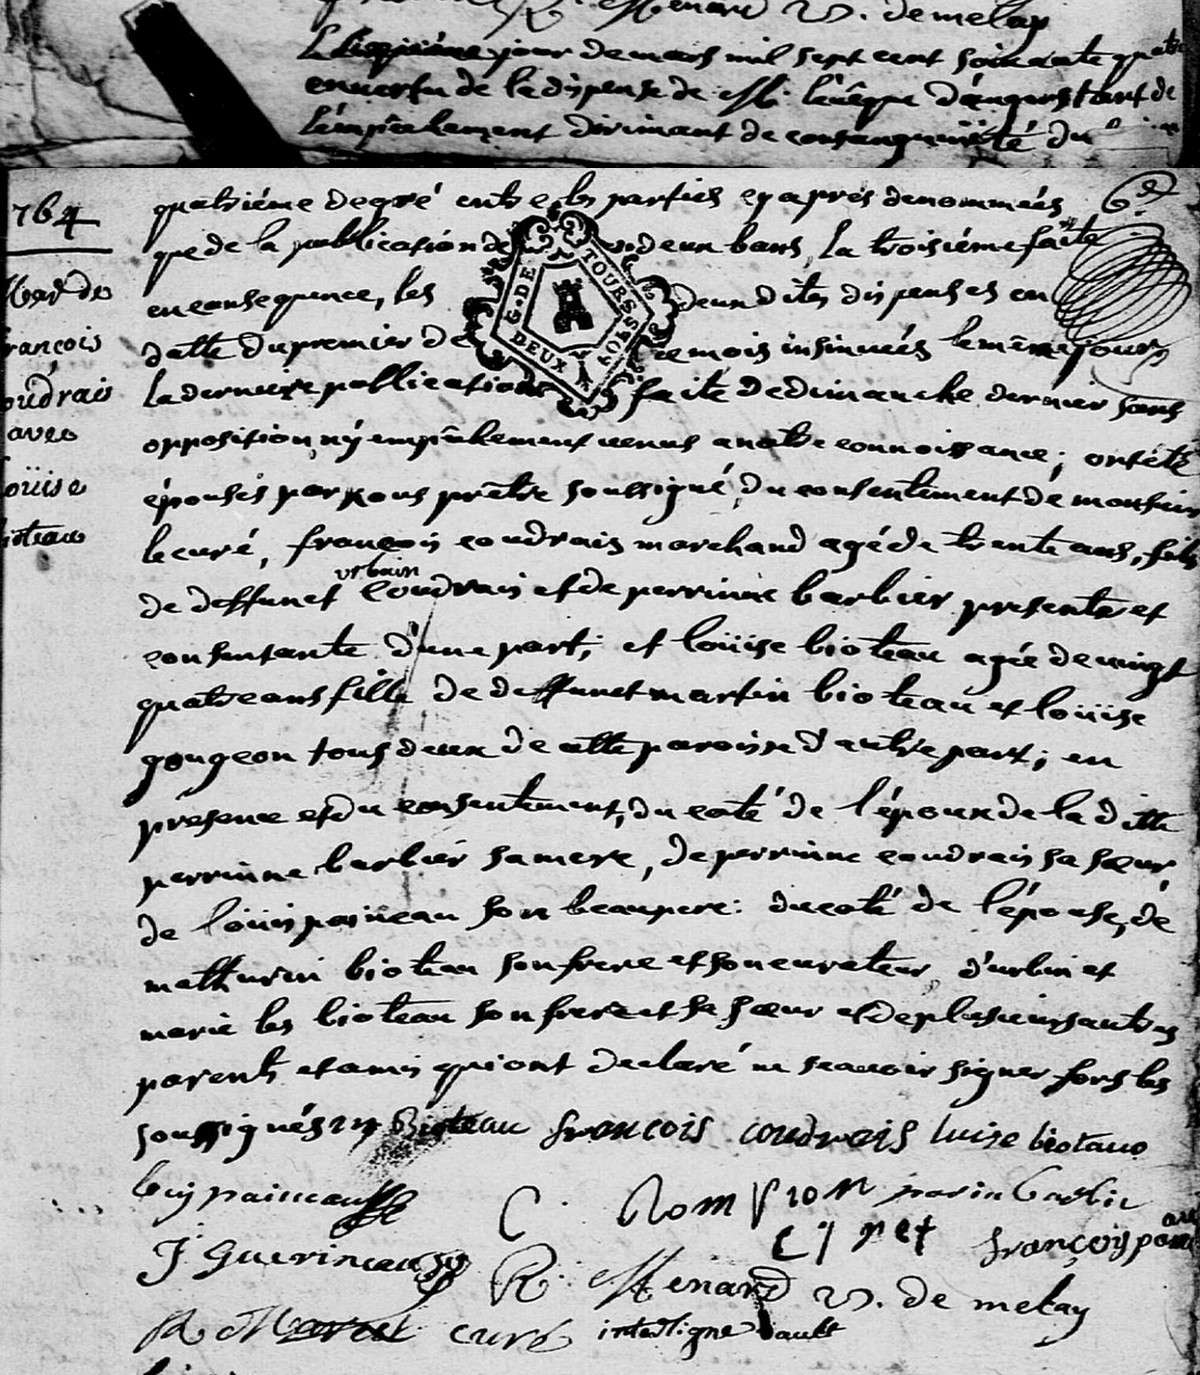 R. Menard v. de melay
jour de mars mil sept cent soixante quatre
en vertu de la dispense de Mr l'évêque d'angers tant de
l'empêchement dirimant de consanguinité du
1764
quatriéme degré entre les parties cy aprés denommées 6e
que de la publication de deux bans, la troisiéme faite
en consequence, les deux dites dispenses en
datte du premier de ce mois insinuées le même jour
la derniere publication faite de dimanche dernier sans
opposition, ny empêchement venus a notre connoissance; ont été
épousés par nous prêtre soussigné, du consentement de monsieur
le curé, françois coudrais marchand agé de trente ans, fils
urbain
de deffunct Coudrais et de perrinne barbier presente et
consentante d'une part; et loüise bioteau agée de vingt
quatre ans fille de deffunct martin bioteau et loüise
gougeon tous deux de cette paroisse d'autre part; en
présence et du consentement, du coté de l'époux de la ditte
perrinne barbier sa mere, de perrinne coudrais sa sœur,
de loüis paineau son beaupere: du coté de l'épouse, de
mathurin bioteau son frere et son curateur, d'urbin et
marie les bioteau son frere et sa sœur et de plusieurs autres
parents et amis qui ont declaré ne scavoir signer fors les
soussignés m Bioteau françois coudrais luise biotauo
C.
françois
J Guerineau
R. Menard v. de melay
curé interligne vault
Mar. de
françois
coudrais
avec
loüise
bioteau
G. DE TOURS
DEUX SOLS